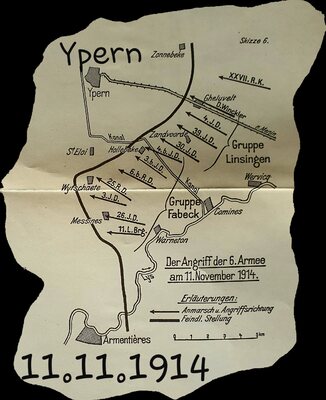 Ypern
Skizze 6.
Zonnebeke
XXVII. R.K.
Ypern
Gheluvelt
D. Winckler
n. Menin
39. J.D.
Zandvoorde
30. J.D.
Kanal
Hollebeke
4. b. J.D.
Gruppe
Linsingen
St Eloi
3. b. J.D.
6. b. R.D.
Kanal
Wervicq
Wytschaete
25. R.D.
3. J.D.
Gruppe
Fabeck
Comines
Messines
26. J.D.
11. L. Brg.
Warneton
Der Angriff der 6. Armee
am 11. November 1914.
Lys
Erläuterungen:
Anmarsch u. Angriffsrichtung
Feindl. Stellung
Armentières
0 1 2 3 4 5 km
11.11.1914